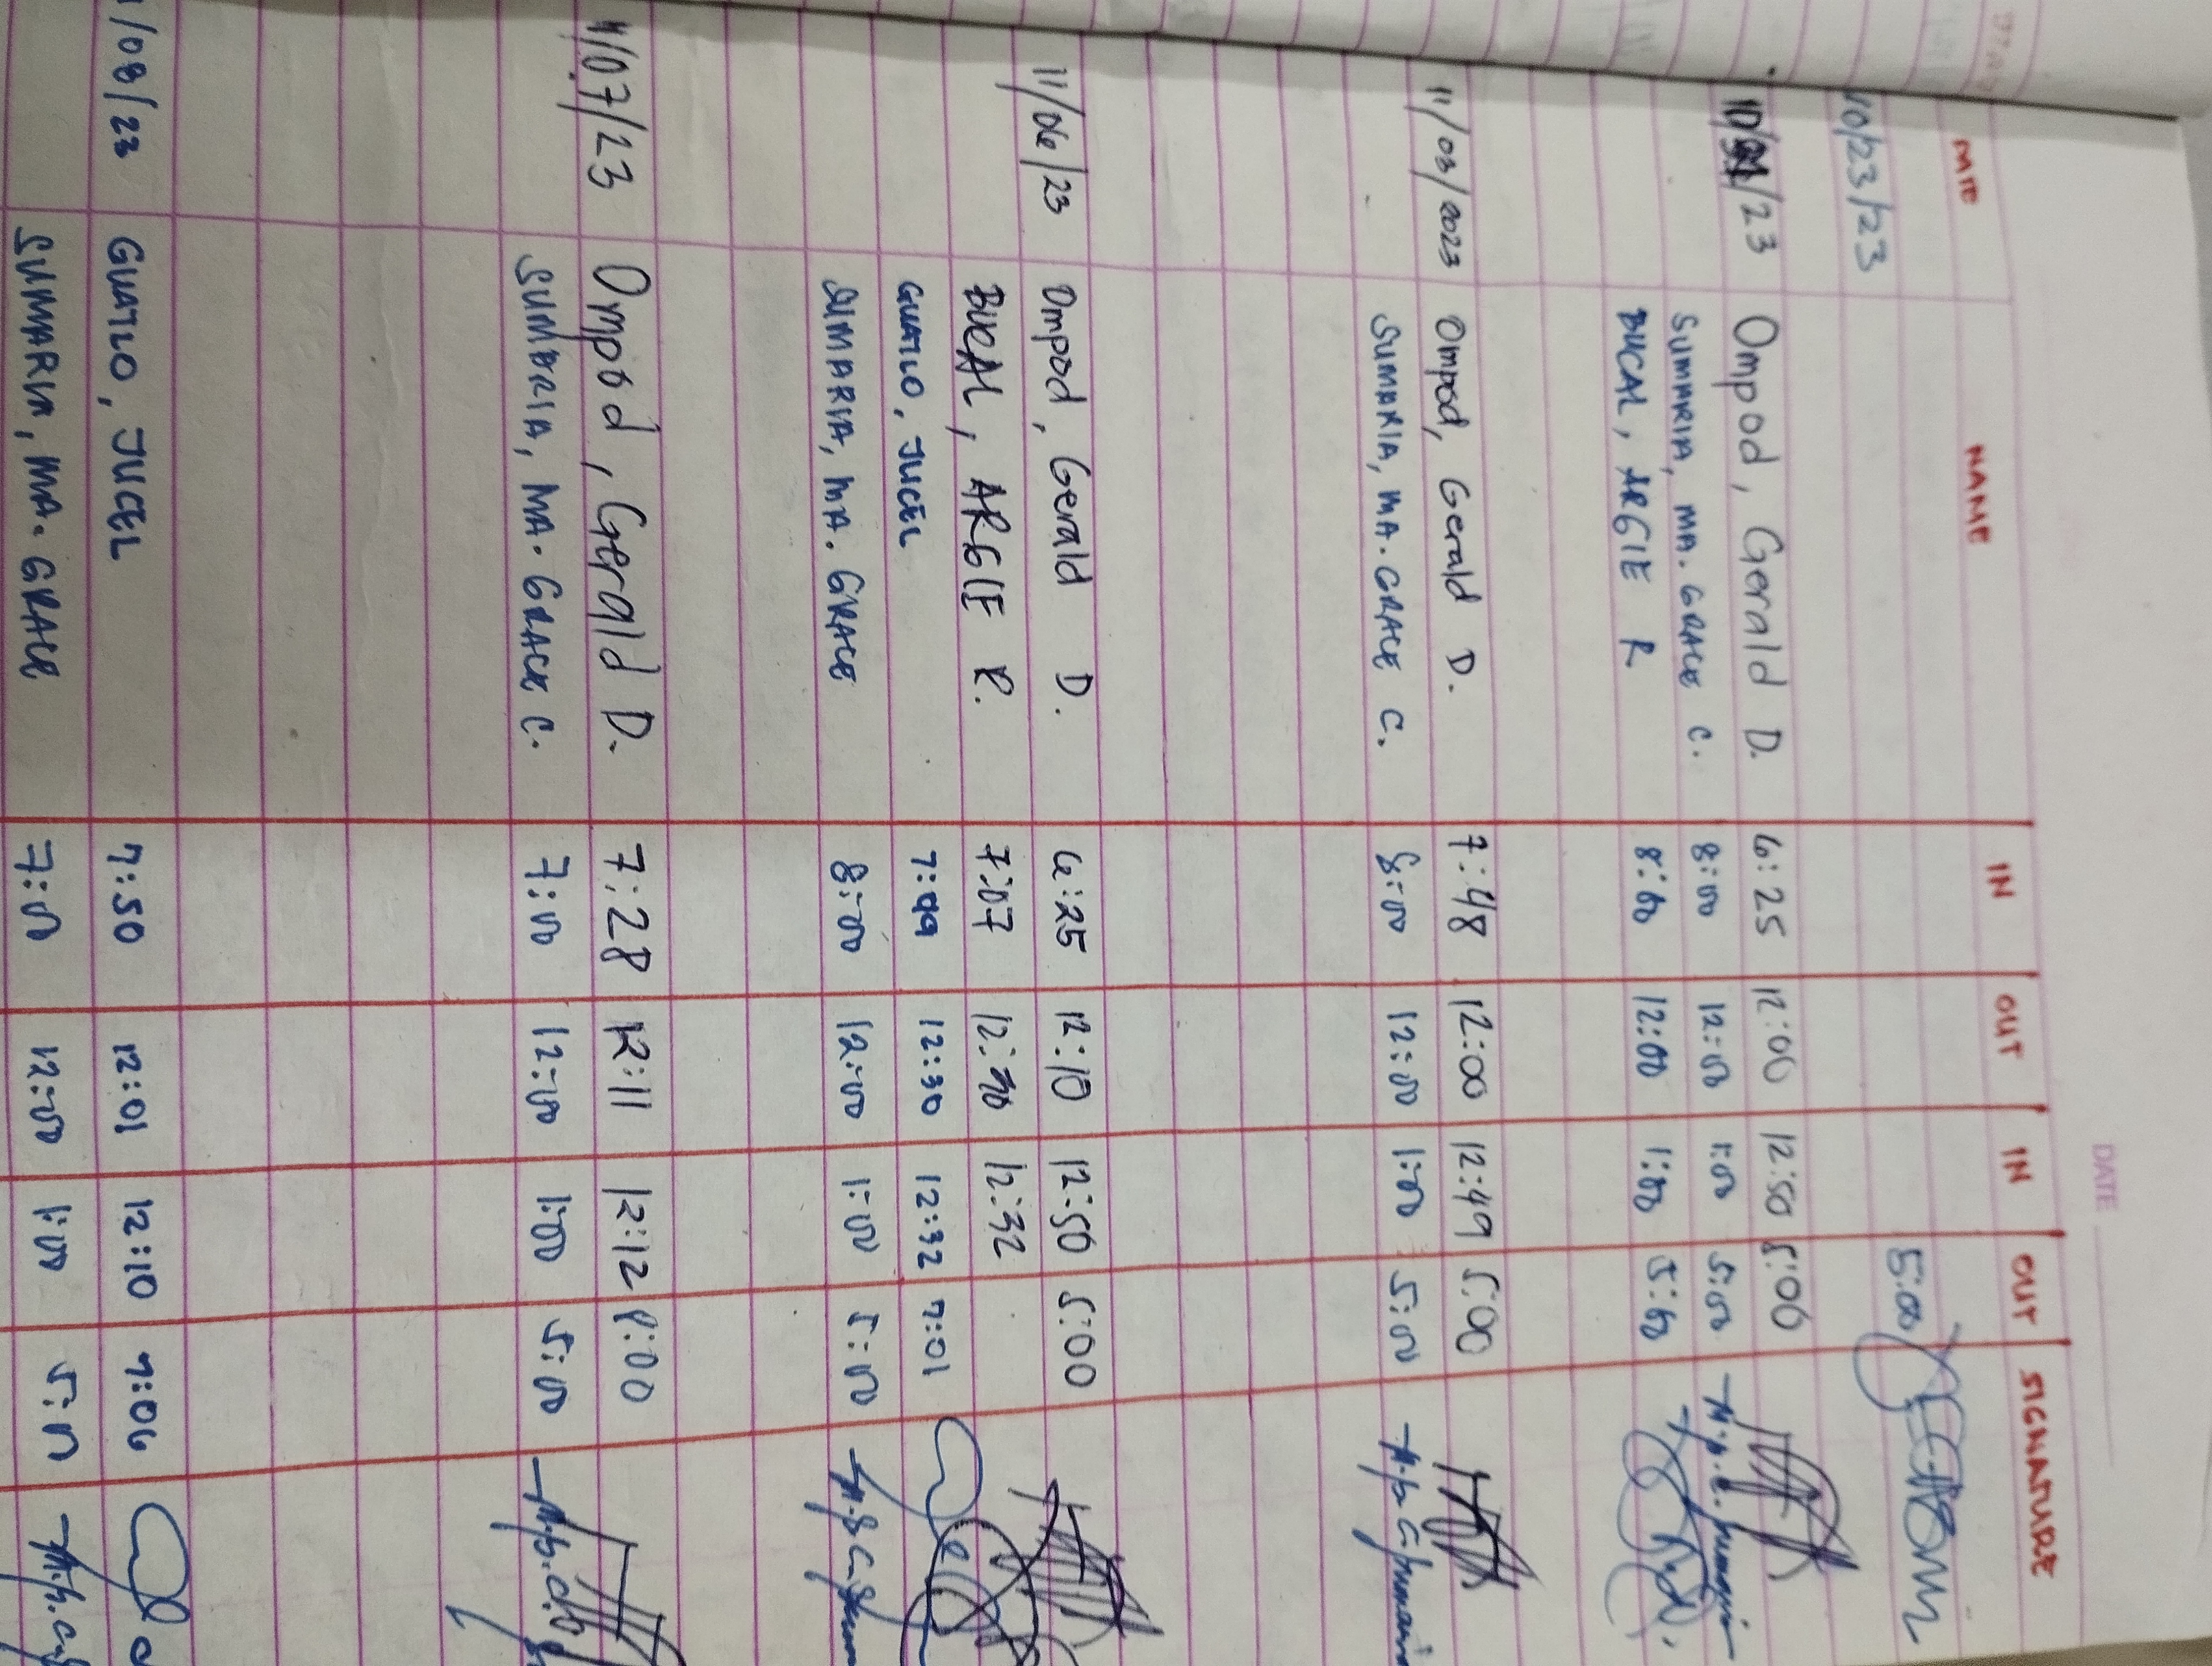 DATE
DATE NAME IN OUT IN OUT SIGNATURE
10/23/23 5:00
10/ /23 Ompod, Gerald D. 6:25 12:00 12:50 5:00
SUMARIA, MA. GRACE C. 8:00 12:00 1:00 5:00
BUCAL, ARGIE R 8:00 12:00 1:00 5:00
11/03/2023 Ompod, Gerald D. 7:48 12:00 12:49 5:00
SUMARIA, MA. GRACE C. 8:00 12:00 1:00 5:00
11/06/23 Ompod, Gerald D. 6:25 12:10 12:50 5:00
BUCAL, ARGIE R. 7:07 12:30 12:32
GUATLO, JUCEL 7:49 12:30 12:32 7:01
SUMARIA, MA. GRACE 8:00 12:00 1:00 5:00
11/07/23 Ompod, Gerald D. 7:28 12:11 12:12 8:00
SUMARIA, MA. GRACE C. 7:00 12:00 1:00 5:00
/08/23 GUATLO, JUCEL 7:50 12:01 12:10 7:06
SUMARIA, MA. GRACE 7:00 12:00 1:00 5:00